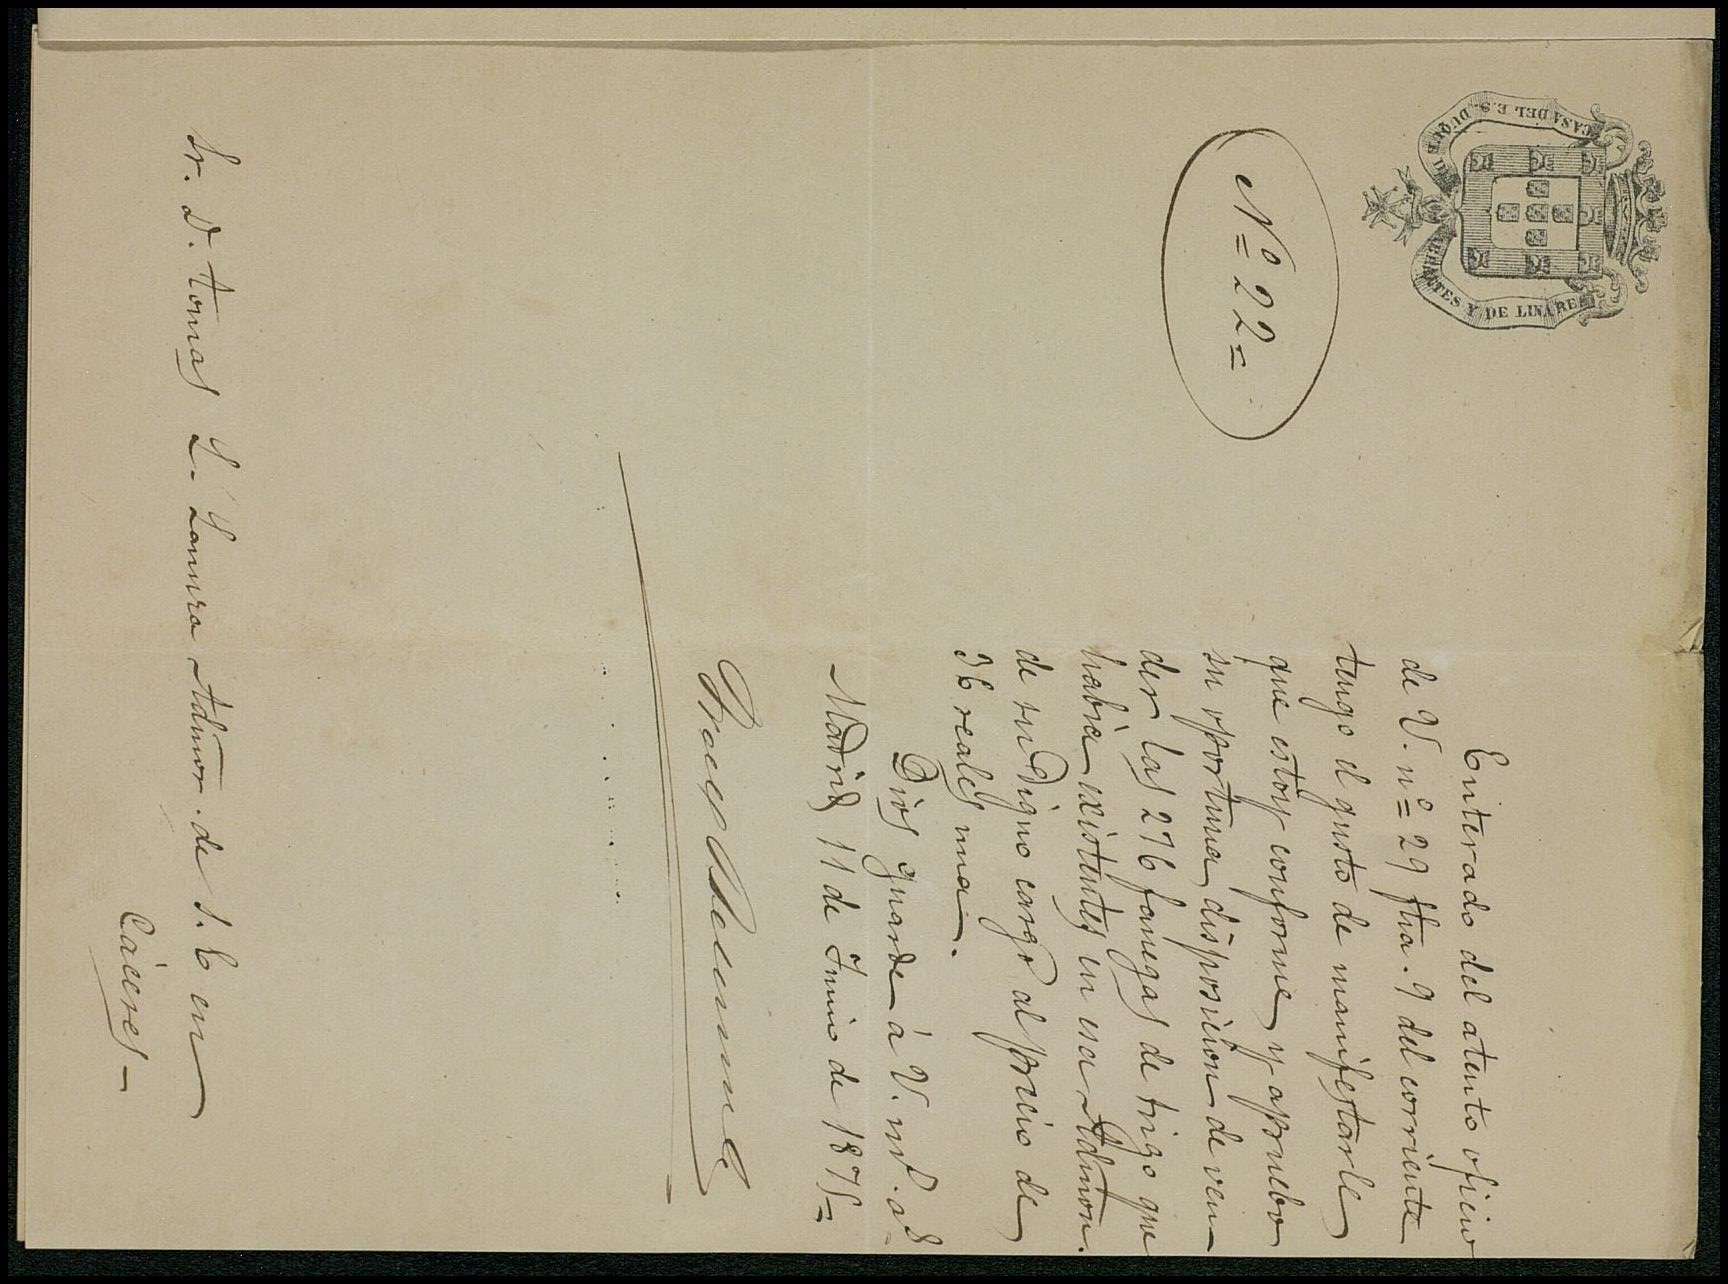 CASA DEL E.S. DUQUE DE ABRANTES Y DE LINARES
Nº 22=
Enterado del atento oficio
de V. nº= 29 fha. 9 del corriente
tengo el gusto de manifestarle
que estoy conforme y apruebo
su oportuna disposicion de ven-
der las 276 fanegas de trigo que
habia existentes en esa Admon.
de su digno cargo al precio de
36 reales una.
Dios guarde á V. ms. as.
Madrid 11 de Junio de 1875=
Sr. D. Tomas L. Admor. de S. E. en
Cáceres-